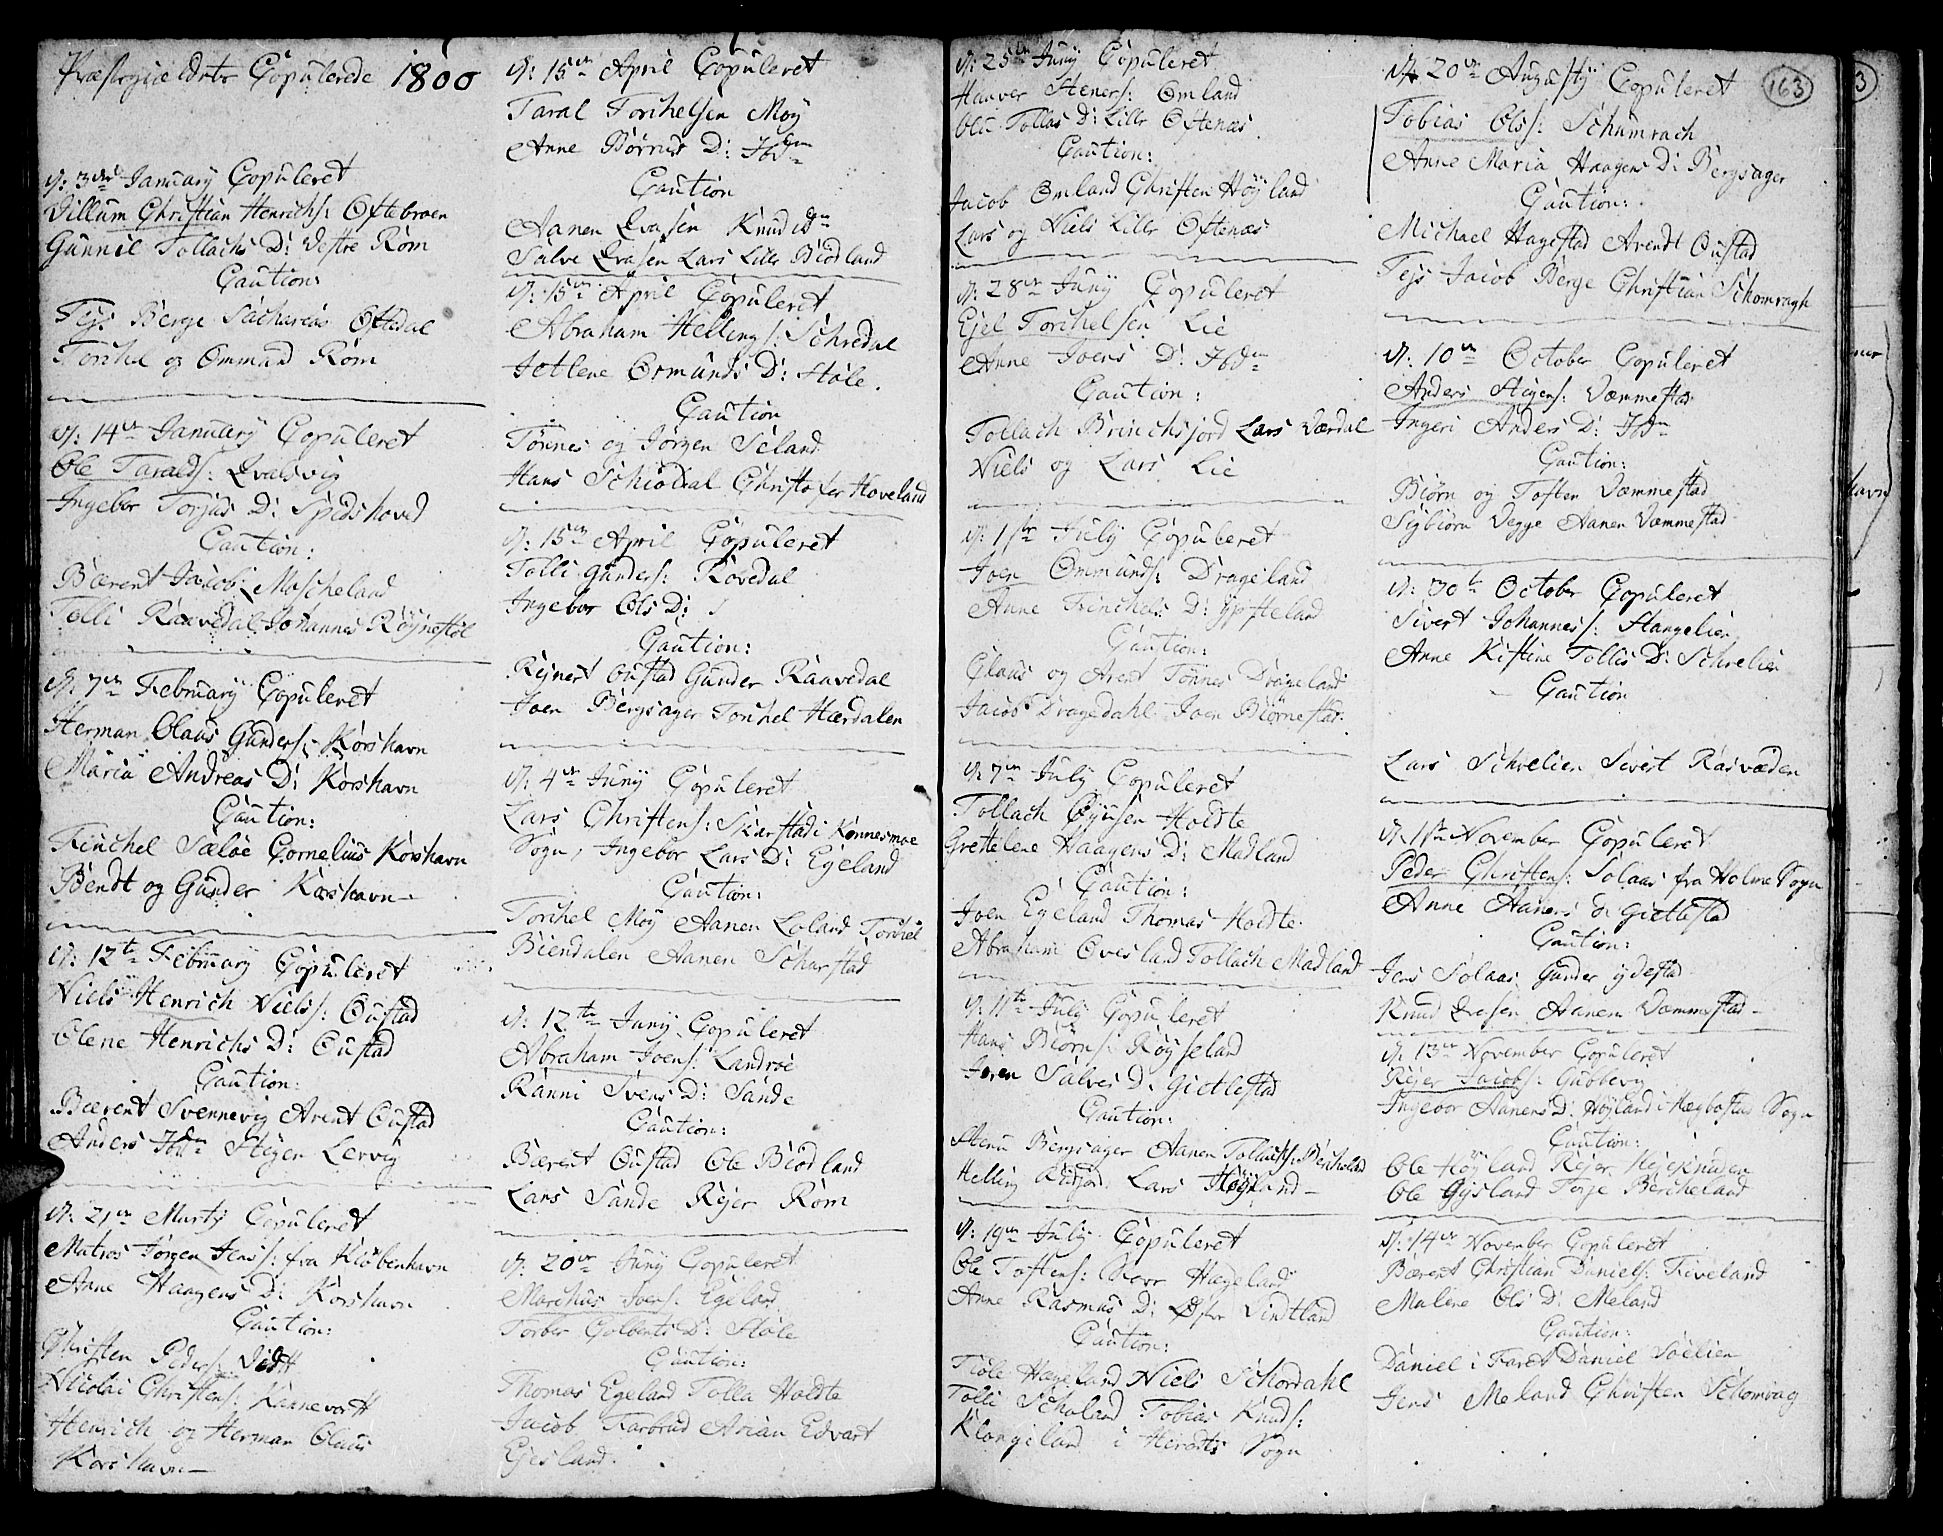 Præstegieldets Copulerede 1800
d: 3die January Copuleret
Villum Christian Henrichs: Oftebroen
Gunnil Tollachs D: Vestre Røm
Caution:
Tejs Berge Sacharias Oftedal
Torchel og Ommund Røm
d: 14de January Copuleret
Ole Taralds: Qvalsvig
Ingebor Torjus D: Spidshoved
Caution:
Bærent Jacobs: Moscheland
Tolli Raavedal Johannes Røÿnestøl
d: 7de February Copuleret
Herman Olaus Gunders: Korshavn
Maria Andreas D: Korshavn
Caution:
Tinchel Sæløe Cornelius Korshavn
Bendt og Gunder Korshavn
d: 12te February Copuleret
Niels Henrich Niels: Oustad
Olene Henrichs D: Oustad
Caution:
Bærent Svennevig Arent Oustad
Anders Ibdm Steger Lervig
d: 21de Martÿ Copuleret
Matros Jørgen Jens: fra Kiöbenhavn
Anne Haagens D: Korshavn
Caution:
Christen Peders: Vidtt
Nicolai Christens: Kannevortt
Henrich og Herman Olaus
Korshavn
d: 15de April Copuleret
Taral Torchelsen Moÿ
Anne Børrius D: Ibdm
Caution
Aanen Qvasen Knud ibdm
Salve Qvasen Lars Lille Biödland
d: 15de April Copuleret
Abraham Hellings: Schredal
Jetlene Ormunds D: Støle.
Caution
Tønnes og Jørgen Seland
Hans Schiödal Christofer Hoveland
d: 15de April Copuleret
Tolli Gunders: Rövedal
Ingebor Ols D:
Caution:
Rejnert Oustad Gunder Raavedal
Joen Bergsager Torchel Hærdalen
d: 4de Junÿ Copuleret
Lars Christens: Skarstad i Konnesmoe
Sogn, Ingebor Lars D: Egeland
Caution:
Torchel Moÿ Aanen Loland Torchel
Biendalen Aanen Scharstad
d: 12te Junÿ Copuleret
Abraham Joens: Landroe
Ranni Svens D: Sande
Caution:
Bærent Oustad Ole Biödland
Lars Sande Rejer Røm
d: 20de Junÿ Copuleret
Marchus Joens: Egeland
Torber Golberts D: Støle
Caution:
Thomas Egeland Tolla Holdte
Jacob Farbrud Arian Edvart
Egesland.
d: 25de Junÿ Copuleret
Haaver Steners: Omland
Olu Tollas D: Lille Oftenæs
Caution:
Jacob Omland Christen Høÿland
Lars og Niels Lille Oftenæs
d: 28de Junÿ Copuleret
Ejel Torchelsen Lie
Anne Joens D: Ibdm
Caution:
Tollach Brinchsjord Lars Værdal
Niels og Lars Lie
d: 1ste July Copuleret
Joen Ommunds: Drageland
Anne Tinchels D: Ypsteland
Caution:
Claus og Arent Tønnes Drageland
Jacob Dragedahl Joen Biörnestad
d: 7de July Copuleret
Tollach Öÿusen Holdte
Grettelene Haagens D: Madland
Caution:
Joen Egeland Thomas Holdte
Abraham Ovesland Tollach Madland
d: 11te July Copuleret
Hans Biörns: Röÿseland
Joren Salves D: Gietlestad
Caution:
Stenu Bergsager Aanen Tollachs: Bercheland
Helling Rudjord Lars Høÿland
d: 19de July Copuleret
Ole Tostens: Store Hageland
Anne Rasmus D: Östre Vindtland
Caution:
Tiöle Hageland Niels Schordahl
Tolli Scholand Tobias Knuds:
Klongeland i Herads Sogn
163
d: 20de Augustÿ Copuleret
Tobias Ols: Schumrach
Anne Maria Haagens D: Bergsager
Caution:
Michael Hagestad Arendt Oustad
Tejs Jacob Berge Christian Schomragh
d: 10de October Copuleret
Anders Stigens: Væmmestad
Ingeri Anders D: Ibdm
Caution:
Biörn og Tosten Væmmestad
Sigbiörn Vegge Aanen Væmmestad
d: 30te October Copuleret
Sivert Johannes: Stangelien
Anne Kistine Tollis D: Schrelien
Caution
Lars Schrelien Sivert Rasvæden
d: 1ste November Copuleret
Peder Christens: Solaas fra Holme Sogn
Anne Aanens D: Gietlestad
Caution:
Jens Solaas Gunder Ydestad
Knud Qvasen Aanen Væmmestad
d: 13de November Copuleret
Rejer Jacobs: Gubbevig
Ingebor Aanens D: Høÿland i Hægbostad Sogn
Caution:
Ole Høÿland Rejer Heieknuden
Ole Gÿsland Terje Bercheland
d: 14de November Copuleret
Bærent Christian Daniels: Fiveland
Malene Ols D: Meland
Caution:
Daniel i Faret Daniel Soelien
Jens Meland Christen Schomrag